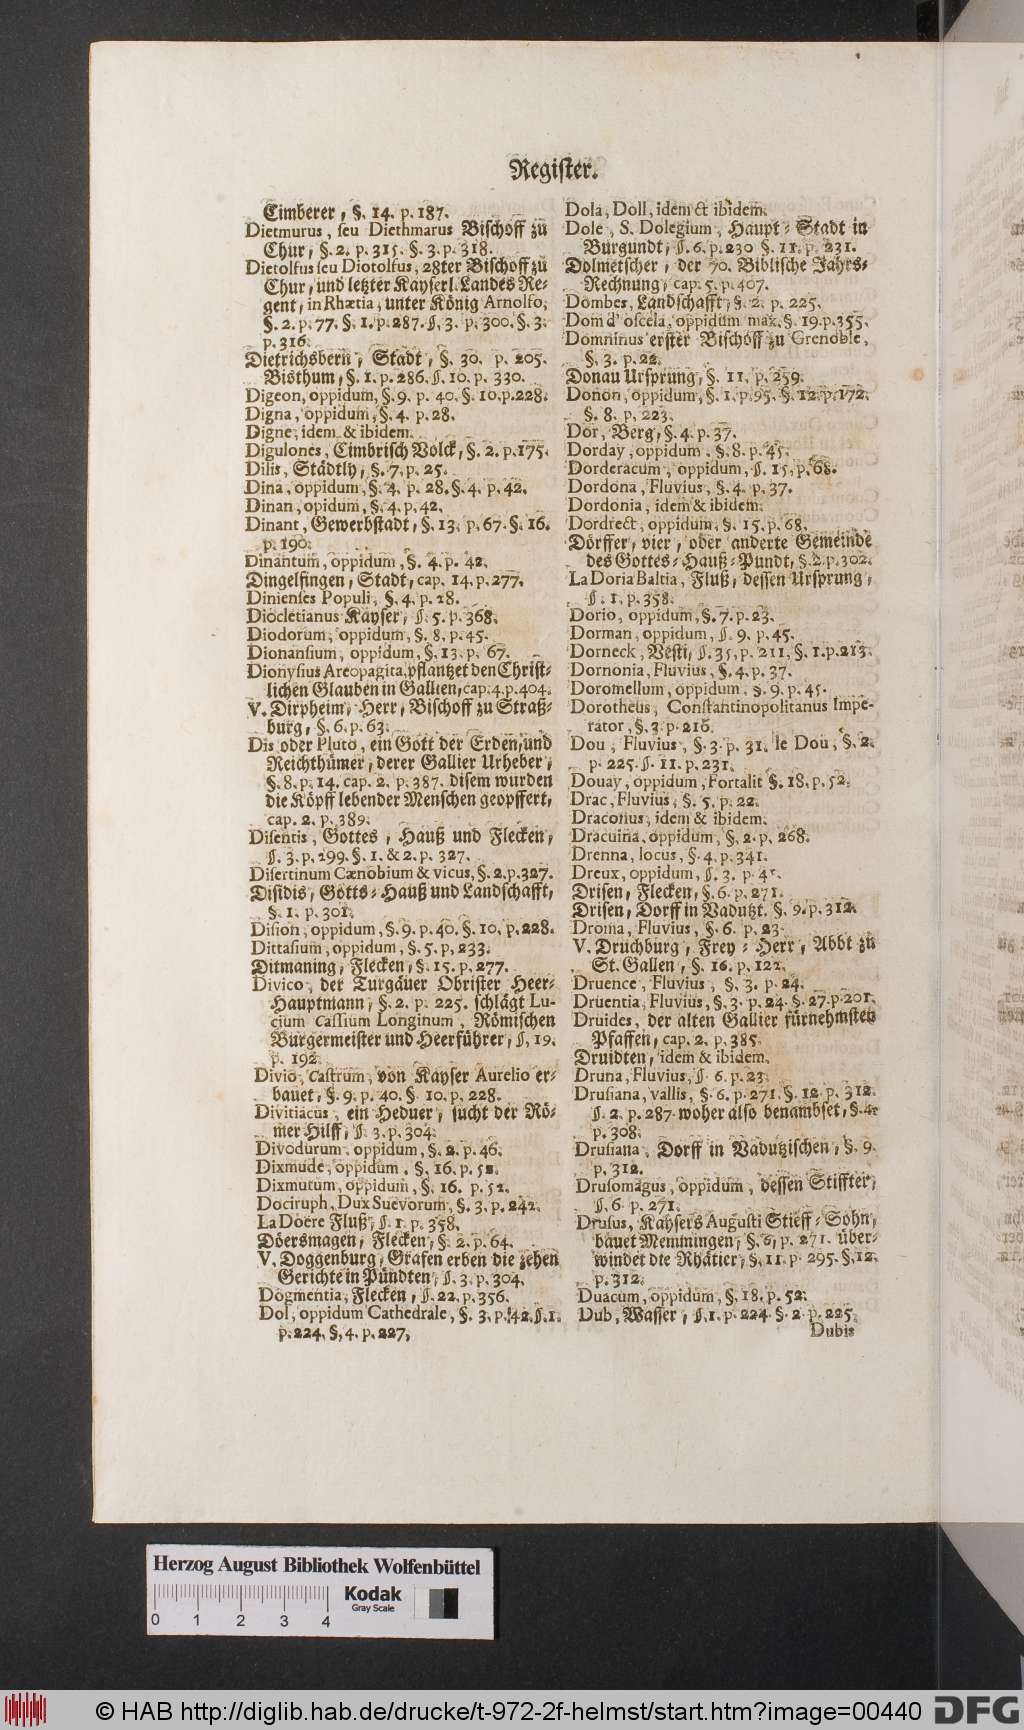 Register.
Cimberer, §. 14. p. 187.
Dietmurus, ſeu Diethmarus Biſchoff zu
Chur, §. 2. p. 315. §. 3. p. 318.
Dietolfus ſeu Diotolfus, 28ter Biſchoff zu
Chur, und letzter Kayſerl. Landes Re-
gent, in Rhætia, unter König Arnolfo,
§. 2. p. 77. §. 1. p. 287. ſ. 3. p. 300. §. 3.
p. 316.
Dietrichsbern, Stadt, §. 30. p. 205.
Bisthum, §. 1. p. 286. ſ. 10. p. 330.
Digeon, oppidum, §. 9. p. 40. §. 10. p. 228.
Digna, oppidum, §. 4. p. 28.
Digne, idem & ibidem.
Digulones, Cimbriſch Volck, §. 2. p. 175.
Dilis, Städtly, §. 7. p. 25.
Dina, oppidum, §. 4. p. 28. §. 4. p. 42.
Dinan, opidum, §. 4. p. 42.
Dinant, Gewerbſtadt, §. 13. p. 67. §. 16.
p. 190.
Dinantum, oppidum, §. 4. p. 42.
Dingelfingen, Stadt, cap. 14. p. 277.
Dinienſes Populi, §. 4. p. 28.
Diocletianus Kayſer, ſ. 5. p. 368.
Diodorum, oppidum, §. 8. p. 45.
Dionanſium, oppidum, §. 13. p. 67.
Dionyſius Areopagita, pflantzet den Chriſt-
lichen Glauben in Gallien, cap. 4. p. 404.
V. Dirpheim, Herr, Biſchoff zu Straß-
burg, §. 6. p. 63.
Dis oder Pluto, ein Gott der Erden, und
Reichthümer, derer Gallier Urheber,
§. 8. p. 14. cap. 2. p. 387. diſem wurden
die Köpff lebender Menſchen geopffert,
cap. 2. p. 389.
Diſentis, Gottes, Hauß und Flecken,
ſ. 3. p. 299. §. 1. & 2. p. 327.
Diſertinum Cænobium & vicus, §. 2. p. 327.
Diſidis, Gotts-Hauß und Landſchafft,
§. 1. p. 301.
Diſion, oppidum, §. 9. p. 40. §. 10. p. 228.
Dittaſium, oppidum, §. 5. p. 233.
Ditmaning, Flecken, §. 15. p. 277.
Divico, der Turgäuer Obriſter Heer-
Hauptmann, §. 2. p. 225. ſchlägt Lu-
cium Caſſium Longinum, Römiſchen
Burgermeiſter und Heerführer, ſ. 19.
p. 192.
Divio, Caſtrum, von Kayſer Aurelio er-
bauet, §. 9. p. 40. §. 10. p. 228.
Divitiacus, ein Heduer, ſucht der Rö-
mer Hilff, ſ. 3. p. 304.
Divodurum, oppidum, §. 2. p. 46.
Dixmude, oppidum, §. 16. p. 52.
Dixmutum, oppidum, §. 16. p. 52.
Dociruph, Dux Suevorum, §. 3. p. 242.
La Doere Fluß, ſ. 1. p. 358.
Döersmagen, Flecken, §. 2. p. 64.
V. Doggenburg, Grafen erben die zehen
Gerichte in Pündten, ſ. 3. p. 304.
Dogmentia, Flecken, ſ. 22. p. 356.
Dol, oppidum Cathedrale, §. 3. p. 42. ſ. 1.
p. 224. §. 4. p. 227,
Dola, Doll, idem & ibidem.
Dole, S. Dolegium, Haupt-Stadt in
Burgundt, ſ. 6. p. 230 §. 11. p. 231.
Dolmetſcher, der 70. Bibliſche Jahrs-
Rechnung, cap. 5. p. 407.
Dombes, Landſchafft, §. 2. p. 225.
Dom d'oſcela, oppidum max. §. 19. p. 355.
Domninus erſter Biſchoff zu Grenoble,
§. 3. p. 22.
Donau Urſprung, §. 11. p. 259.
Donon, oppidum, §. 1. p. 95. §. 12. p. 172.
§. 8. p. 223.
Dor, Berg, §. 4. p. 37.
Dorday, oppidum, §. 8. p. 45.
Dorderacum, oppidum, ſ. 15. p. 68.
Dordona, Fluvius, §. 4. p. 37.
Dordonia, idem & ibidem.
Dordrect, oppidum, §. 15. p. 68.
Dörffer, vier, oder anderte Gemeinde
des Gottes-Hauß-Pundt, §. 2. p. 302.
La Doria Baltia, Fluß, deſſen Urſprung,
ſ. 1. p. 358.
Dorio, oppidum, §. 7. p. 23.
Dorman, oppidum, ſ. 9. p. 45.
Dorneck, Veſti, ſ. 35. p. 211. §. 1. p. 213.
Dornonia, Fluvius, §. 4. p. 37.
Doromellum, oppidum, §. 9. p. 45.
Dorotheus, Conſtantinopolitanus Impe-
rator, §. 3. p. 216.
Dou, Fluvius, §. 3. p. 31. le Dou, §. 2.
p. 225. ſ. 11. p. 231.
Douay, oppidum, Fortalit §. 18. p. 52.
Drac, Fluvius, §. 5. p. 22.
Draconus, idem & ibidem.
Dracuina, oppidum, §. 2. p. 268.
Drenna, locus, §. 4. p. 341.
Dreux, oppidum, ſ. 3. p. 41.
Driſen, Flecken, §. 6. p. 271.
Driſen, Dorff in Vadutzt. §. 9. p. 312.
Droma, Fluvius, §. 6. p. 23.
V. Druchburg, Frey-Herr, Abbt zu
St. Gallen, §. 16. p. 122.
Druence, Fluvius, §. 3. p. 24.
Druentia, Fluvius, §. 3. p. 24. §. 27. p. 201.
Druides, der alten Gallier fürnehmſten
Pfaffen, cap. 2. p. 385.
Druidten, idem & ibidem.
Druna, Fluvius, ſ. 6. p. 23.
Druſiana, vallis, §. 6. p. 271. §. 12. p. 312.
ſ. 2. p. 287. woher alſo benambſet, §. 4.
p. 308.
Druſiana, Dorff in Vadutziſchen, §. 9.
p. 312.
Druſomagus, oppidum, deſſen Stiffter,
ſ. 6. p. 271.
Druſus, Kayſers Auguſti Stieff-Sohn,
bauet Memmingen, §. 6. p. 271. über-
windet die Rhätier, §. 11. p. 295. §. 12.
p. 312.
Duacum, oppidum, §. 18. p. 52.
Dub, Waſſer, ſ. 1. p. 224. §. 2. p. 225.
Dubis
Herzog August Bibliothek Wolfenbüttel
0 1 2 3 4
Kodak
Gray Scale
© HAB http://diglib.hab.de/drucke/t-972-2f-helmst/start.htm?image=00440
DFG